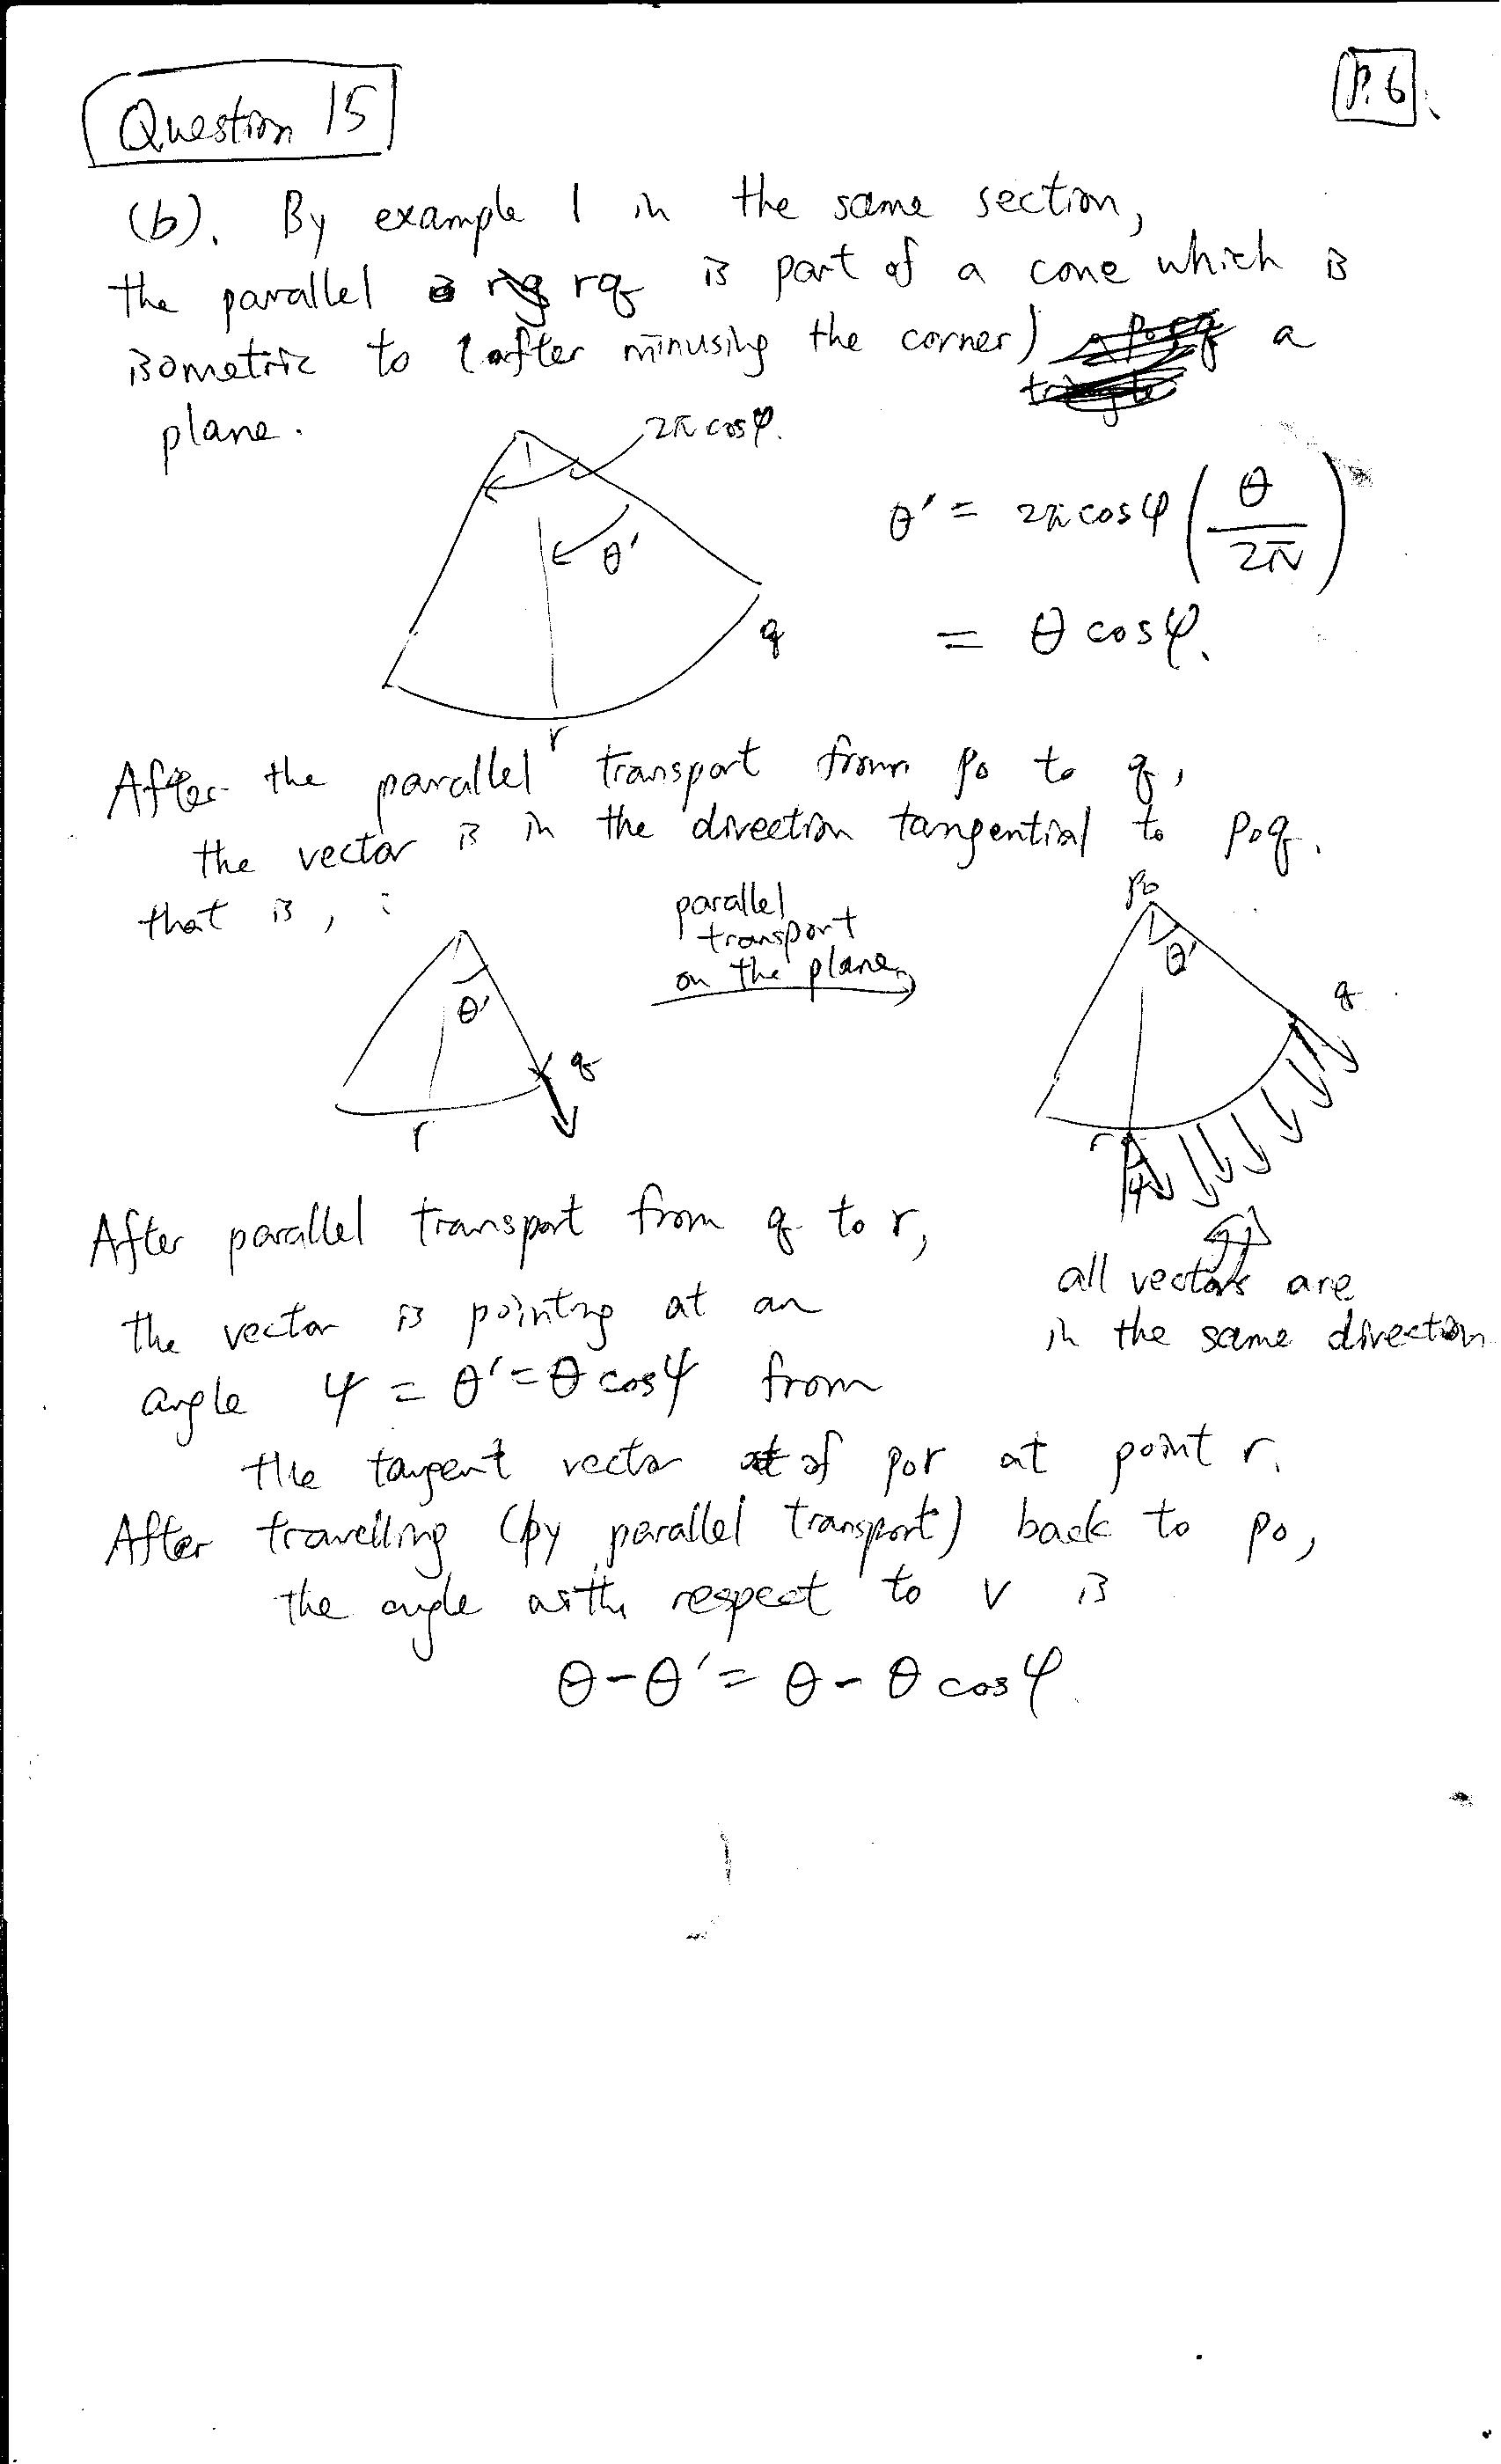 Question 15
P. 6
(b). By example 1 in the same section,
the parallel rq is part of a cone which is
isometric to (after minusing the corner) a
plane.
2π cosφ.
θ'
q
r
θ' = 2π cosφ (θ/2π)
= θ cosφ.
After the parallel transport from po to q,
the vector is in the direction tangential to poq.
that is, :
θ'
q
r
parallel
transport
on the plane
po
θ'
q
r
ψ
all vectors are
in the same direction
After parallel transport from q to r,
the vector is pointing at an
angle ψ = θ' = θ cosφ from
the tangent vector of por at point r.
After travelling (by parallel transport) back to po,
the angle with respect to v is
θ-θ' = θ - θ cosφ.